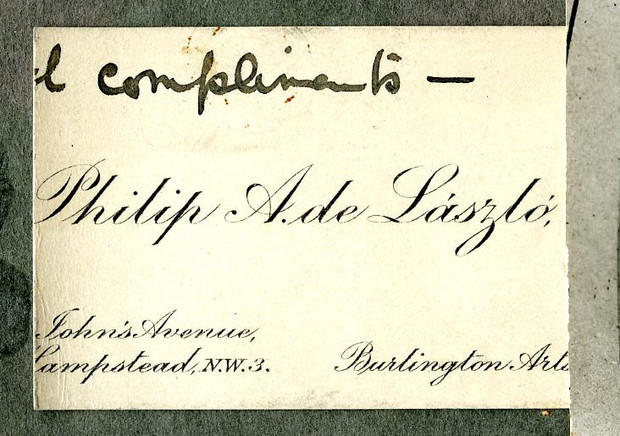 compliments —
Philip A. de László,
John's Avenue,
Hampstead, N.W.3. Burlington Arts